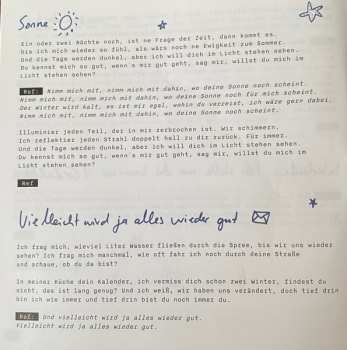 Sonne
Ein oder zwei Nächte noch, ist ne Frage der Zeit, dann kommt es.
bis ich mich wieder so fühl, als wärs noch ne Ewigkeit zum Sommer.
Und die Tage werden dunkel, aber ich will dich im Licht stehen sehen.
Du kennst mich so gut, wenn's mir gut geht, sag mir, willst du mich im
Licht stehen sehen?
Ref: Nimm mich mit, nimm mich mit dahin, wo deine Sonne noch scheint.
Nimm mich mit, nimm mich mit dahin, wo deine Sonne noch für mich scheint.
Der Winter wird kalt, es ist mir egal, wohin du verreist, ich wäre gern dabei.
Nimm mich mit, nimm mich mit dahin, wo deine Sonne noch scheint.
Illuminier jeden Teil, der in mir zerbrochen ist. Wir schimmern.
Ich reflektier jeden Strahl doppelt hell zu dir zurück. Für immer.
Und die Tage werden dunkel, aber ich will dich im Licht stehen sehen.
Du kennst mich so gut, wenn's mir gut geht, sag mir, willst du mich im
Licht stehen sehen?
Ref
Vielleicht wird ja alles wieder gut
Ich frag mich, wieviel Liter Wasser fließen durch die Spree, bis wir uns wieder
sehen? Ich frag mich manchmal, wie oft fahr ich noch durch deine Straße
und schaue, ob du da bist?
In meiner Küche dein Kalender, ich vermiss dich schon zwei Winter, findest du
nicht, das ist lang genug? Und ich weiß, wir haben uns verändert, doch tief drin
bin ich wie immer und tief drin bist du noch immer du.
Ref: Und vielleicht wird ja alles wieder gut.
Vielleicht wird ja alles wieder gut.